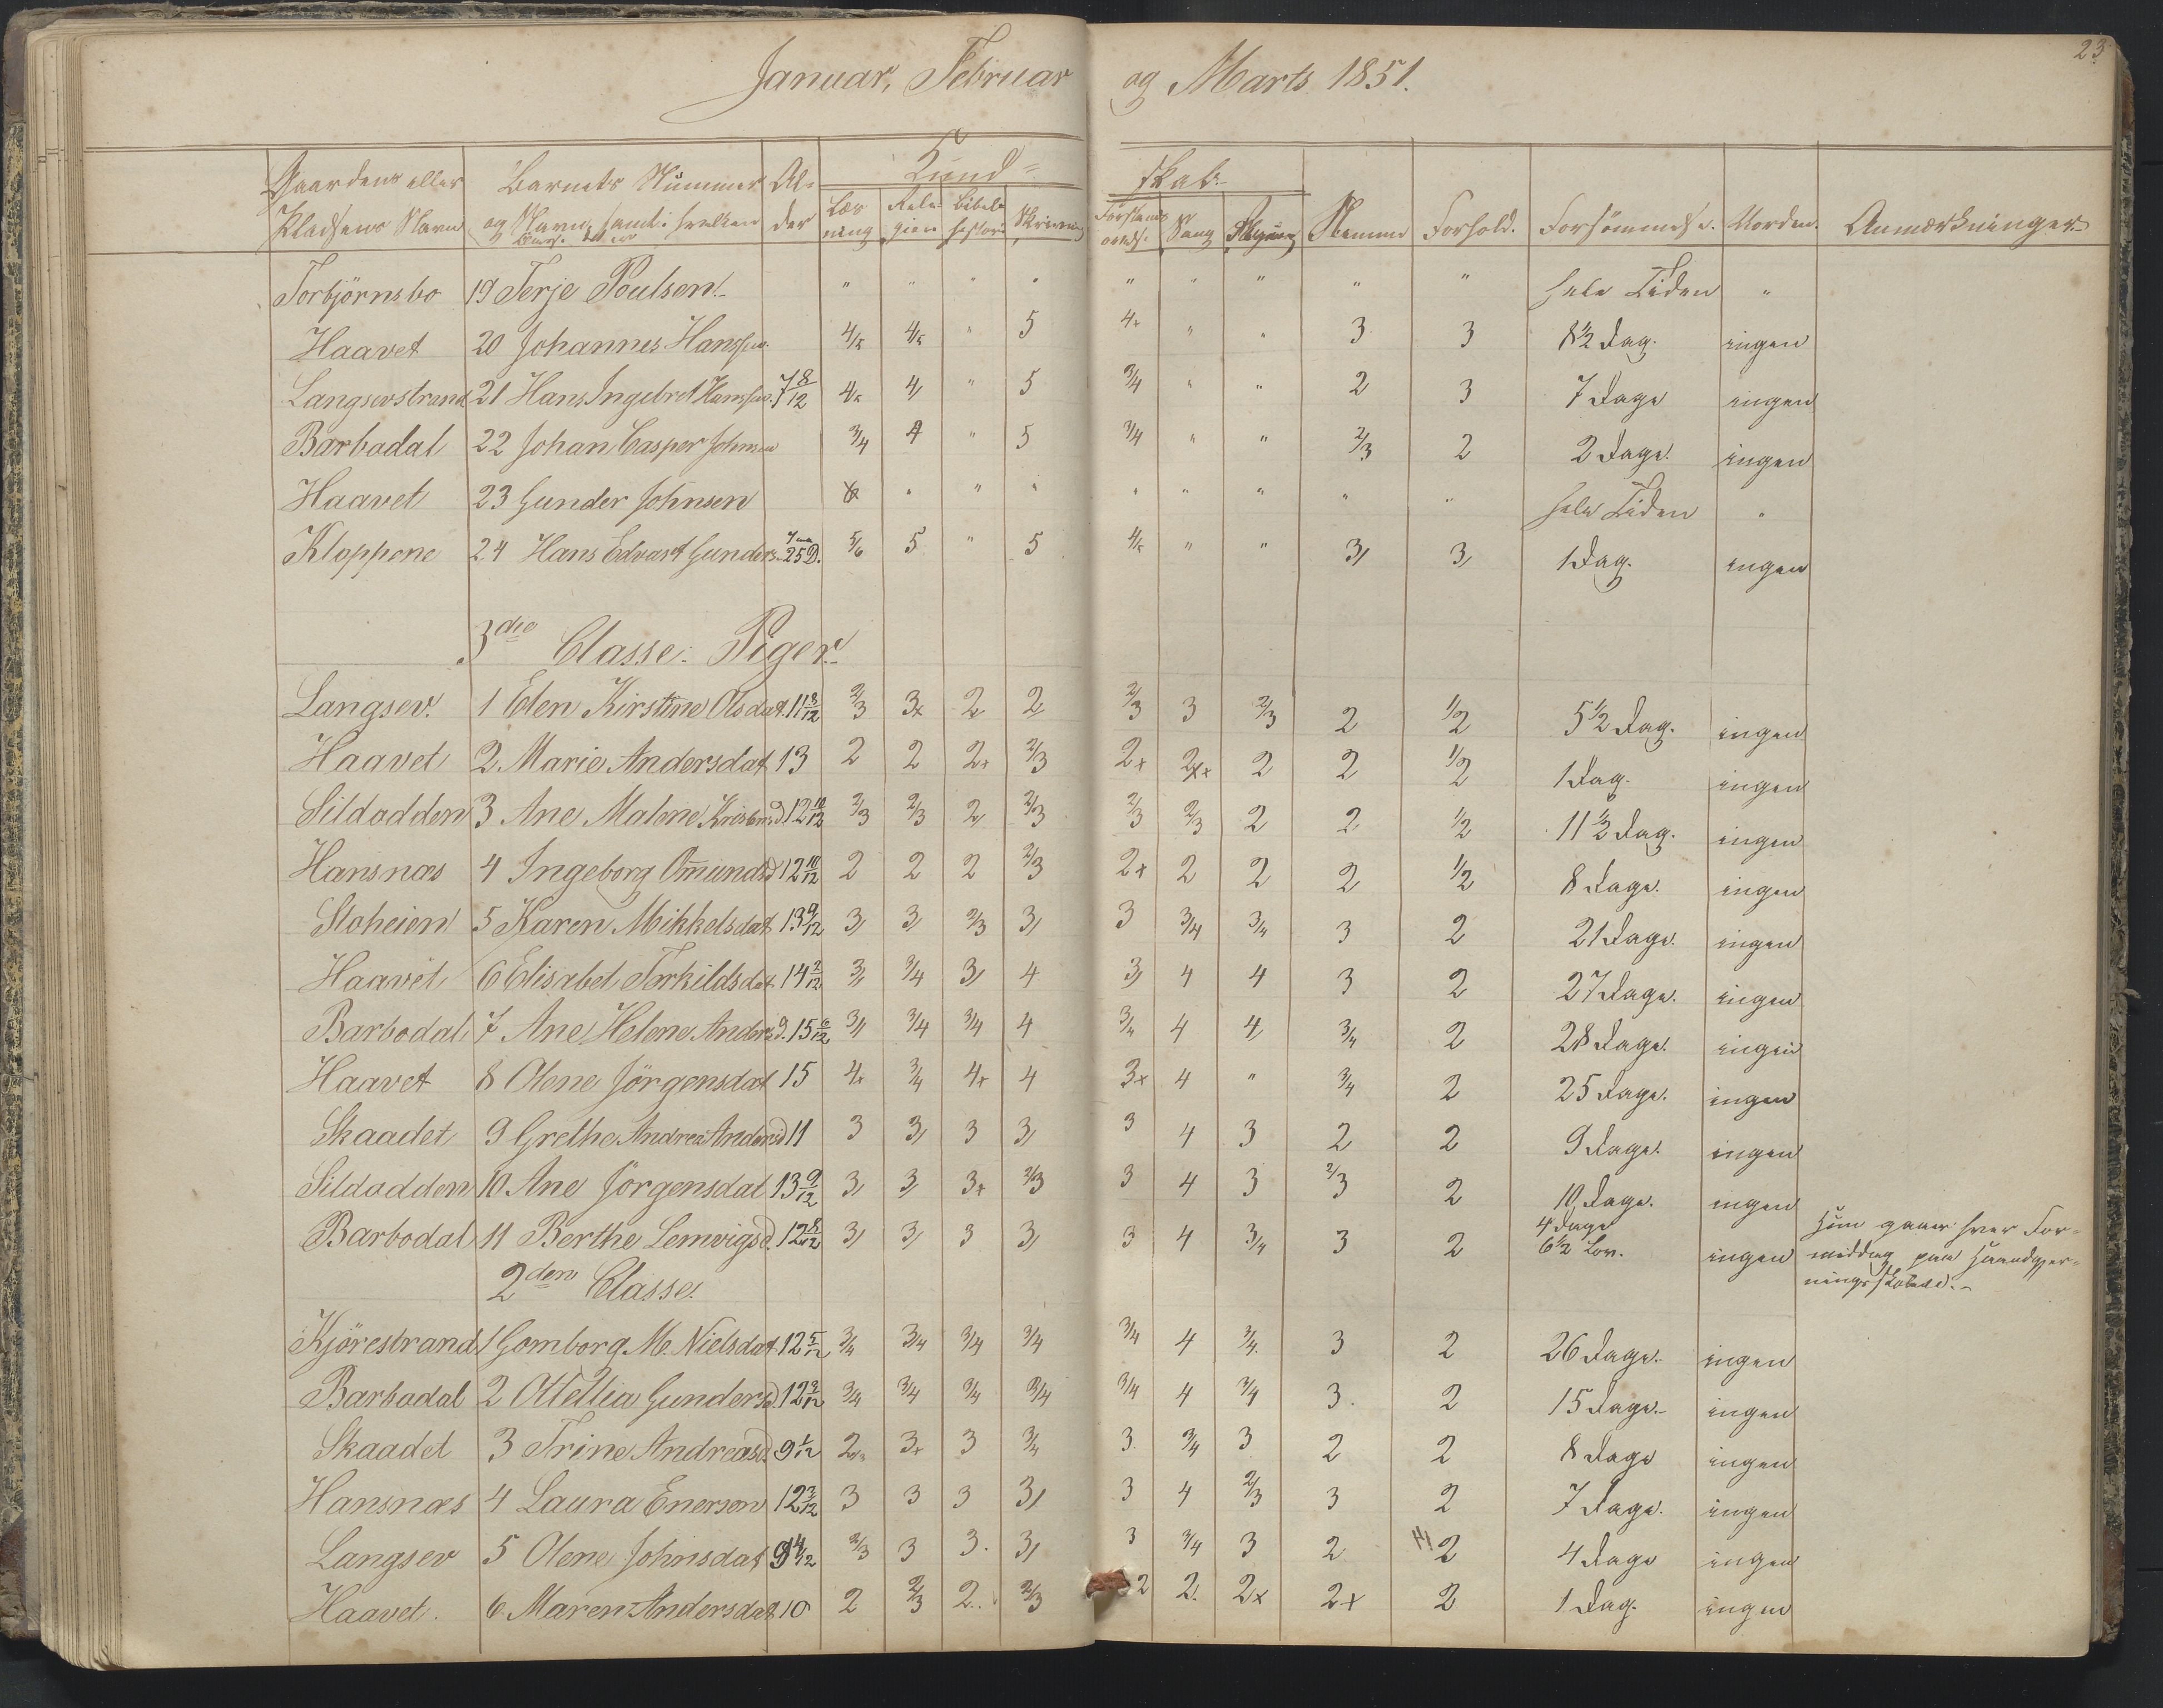 23
Januar, Februar og Marts 1851.
Gaardens eller Pladsens Navn | Barnets Nummer og Navn, samt | Al- der | Kund- skab | Nemme | Forhold. | Forsömmelse. | Anmærkninger.
Læs ning | Reli gion | Bibel histor. | Skrivning | Sang | Regning
Torbjörnsbo 19 Terje Poulsen " " " " " " " " " hele Tiden "
Haavet 20 Johannes Hanssen 4/5 4/5 " 5 4x " " 3 3 8 1/2 Dag. ingen
Langsevstrand 21 Hans Ingebret Hanssen. 7 8/12 4/5 4/ " 5 3/4 " " 2 3 7 Dage ingen
Barbodal 22 Johan Casper Johnsen 3/4 4 " 5 3/4 " " 2/3 2 2 Dage. ingen
Haavet 23 Gunder Johnsen " " " " " " " " hele Tiden "
Kloppene 24 Hans Edvart Gunders. 25 D. 5/6 5 " 5 4/5 " " 3/ 3/ 1 Dag. ingen
3die Classe. Piger.
Langsev. 1 Elen Kirstine Olsdat. 11 8/12 2/3 3x 2/ 2/ 2/3 3 2/3 2 1/2 5 1/2 Dag. ingen
Haavet 2 Marie Andersdat 13 2 2 2x 2/3 2x 2/x 2 2 1/2 1 Dag. ingen
Sildodden 3 Ane Malene d 12 10/12 2/3 2/3 2/ 2/3 2/3 2/3 2 2 1/2 11 1/2 Dag. ingen
Hansnæs 4 Ingeborg Omunds d 12 10/12 2 2 2 2/3 2x 2 2 2 1/2 8 Dage. ingen
Stoheien 5 Karen Mikkelsdat 13 9/12 3/ 3/ 2/3 3/ 3 3/4 3/4 3 2 21 Dage. ingen
Haavet 6 Elisabet Torkildsdat 14 2/12 3/ 3/4 3/ 4 3/ 4 4 3 2 27 Dage. ingen
Barbodal 7 Ane Helene Anders d. 15 6/12 3/ 3/4 3/4 4 3/4 4 4/ 3/4 2 28 Dage. ingen
Haavet 8 Olene Jörgensdat 15 4x 3/4 4x 4 3x 4 " 3/4 2 25 Dage. ingen
Skaadet 9 Grethe Andrea Anders d 11 3 3/ 3 3/ 3 4 3 2 2 9 Dage. ingen
Sildodden 10 Ane Jörgensdat 13 9/12 3/ 3/ 3x 2/3 3 4 3 2/3 2 10 Dage. ingen
Barbodal 11 Berthe Lemvigs d. 12 8/12 3/ 3/ 3 3/ 3 4 3/4 3 2 4 Dage 6 1/2 Lov. ingen Hun gaaer hver For-
middag paa Haandgjer-
ningsskolen.
2den Classe.
Kjörestrand 1 Gomborg M. Nielsdat. 12 5/12 3/4 3/4 3/4 3/4 3/4 4 3/4 3 2 26 Dage. ingen
Barbodal 2 Otellia Gunders d. 12 3/12 3/4 3/4 3/4 3/4 3/4 4 3/4 3. 2 15 Dage. ingen
Skaadet 3 Trine Andreas d. 9 1/12 2 3x 3 3/4 3 3/4 3 2 2 8 Dage ingen
Hansnæs 4 Laura Enersen 12 3/12 3 3 3 3/ 3 4 2/3 3 2 7 Dage. ingen
Langsev 5 Olene Johnsdat 9 4/12 2/3 3 3. 3/ 3 3/4 3 2 2 4 Dage ingen
Haavet. 6 Maren Andersdat 10 2 2/3 2. 2/3 2 2. 2x 2x 2 1 Dag. ingen